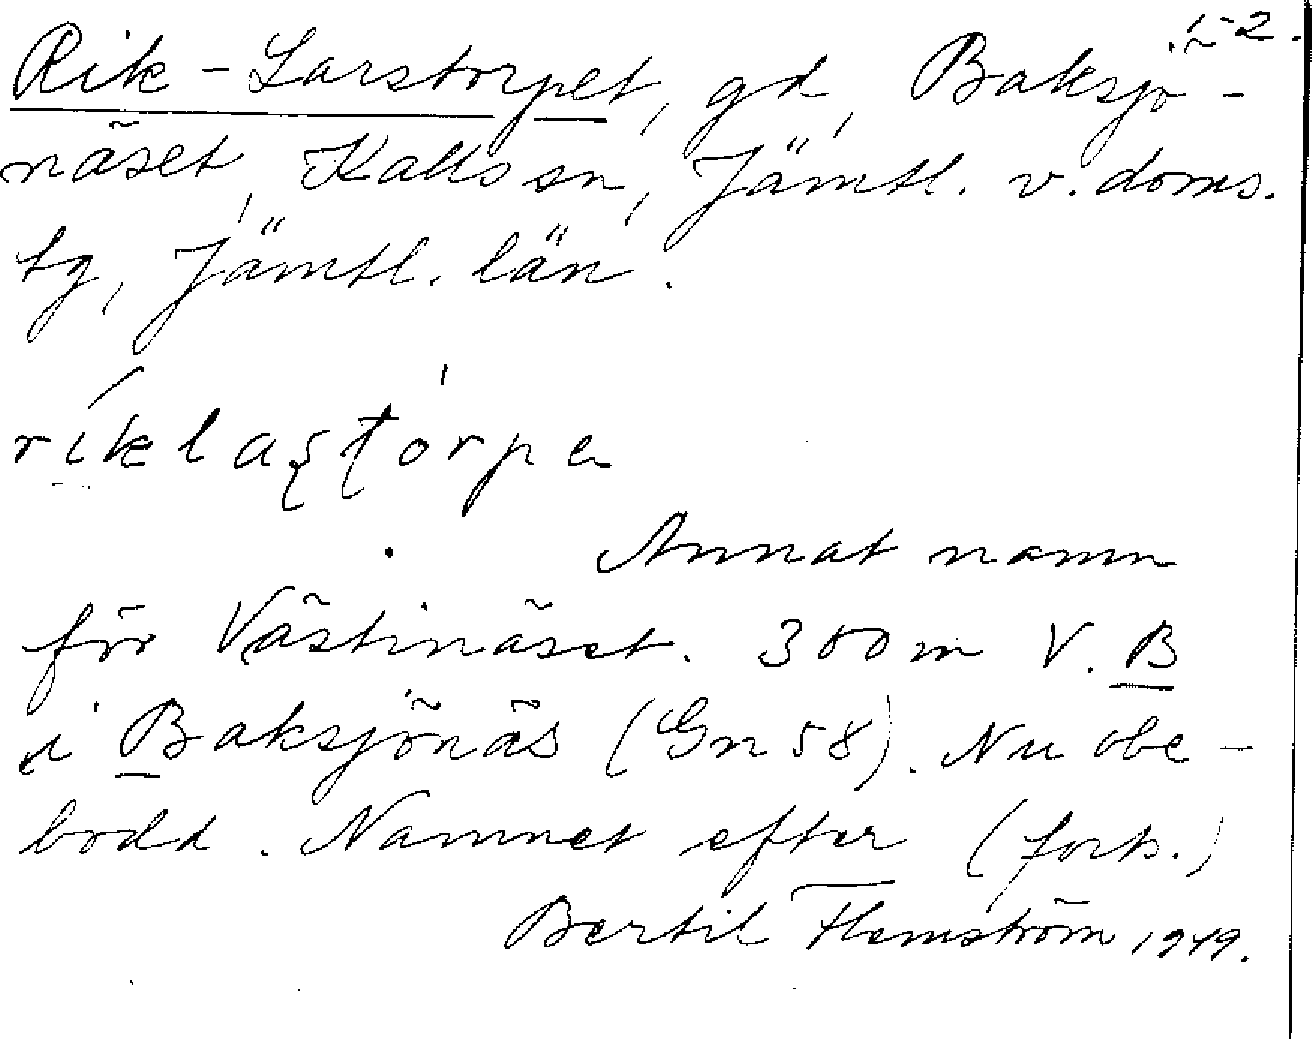 1-2.
Rik-Larstorpet, gd, Baksjö-
näset, Kalls sn, Jämtl. v. doms.
tg, Jämtl. län.
Annat namn
för Västinäset. 300 m V. B
i Baksjönäs (Gn 58). Nu obe-
bodd. Namnet efter (forts.)
Bertil Flemström 1949.